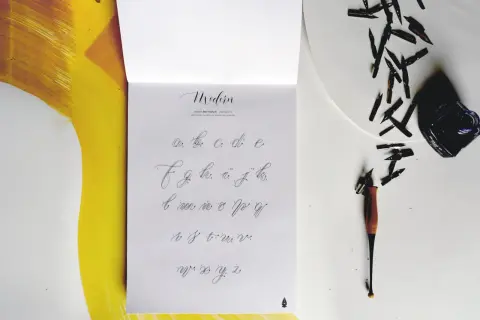 Modern
a b c d e
f g h i j k
l m n o p q
r s t u v
w x y z